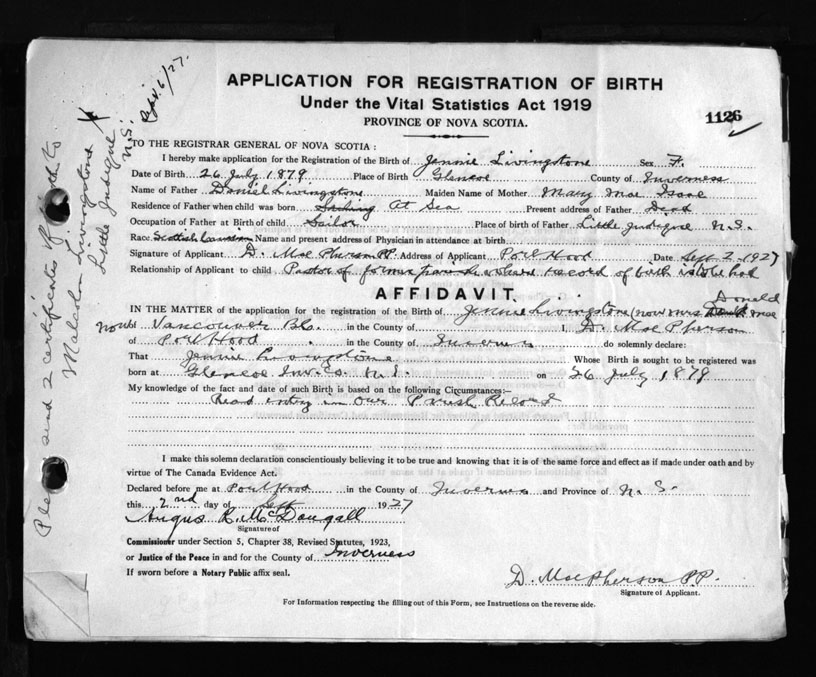 APPLICATION FOR REGISTRATION OF BIRTH
Under the Vital Statistics Act 1919
PROVINCE OF NOVA SCOTIA.
1126
Sept. 6/27.
Please send 2 certificates of birth to
Malcolm Livingstone
Little Judique
N.S.
TO THE REGISTRAR GENERAL OF NOVA SCOTIA:
I hereby make application for the Registration of the Birth of Jennie Livingstone Sex F.
Date of Birth 26 July 1879 Place of Birth Glencoe County of Inverness
Name of Father Daniel Livingstone Maiden Name of Mother Mary Mac Isaac
Residence of Father when child was born Sailing At Sea Present address of Father Dead
Occupation of Father at Birth of child Sailor Place of birth of Father Little Judique N.S.
Race Scottish Canadian Name and present address of Physician in attendance at birth
Signature of Applicant D. MacPherson P.P. Address of Applicant Port Hood Date Sept 2, 1927
Relationship of Applicant to child Pastor of former parish where record of birth is to be had
AFFIDAVIT.
IN THE MATTER of the application for the registration of the Birth of Jennie Livingstone (now Mrs Donald Mac
now of Vancouver B.C. in the County of I, D. MacPherson
of Port Hood in the County of Inverness do solemnly declare:
That Jennie Livingstone Whose Birth is sought to be registered was
born at Glencoe Inv. Co. N.S. on 26 July 1879
My knowledge of the fact and date of such Birth is based on the following Circumstances:—
Read entry in our Parish Record
I make this solemn declaration conscientiously believing it to be true and knowing that it is of the same force and effect as if made under oath and by
virtue of The Canada Evidence Act.
Declared before me at Port Hood in the County of Inverness and Province of N.S.
this 2nd day of Sept 1927
Angus R. McDougall
Signature of
Commissioner under Section 5, Chapter 38, Revised Statutes, 1923,
or Justice of the Peace in and for the County of Inverness
If sworn before a Notary Public affix seal.
D. MacPherson P.P.
Signature of Applicant.
For Information respecting the filling out of this Form, see Instructions on the reverse side.